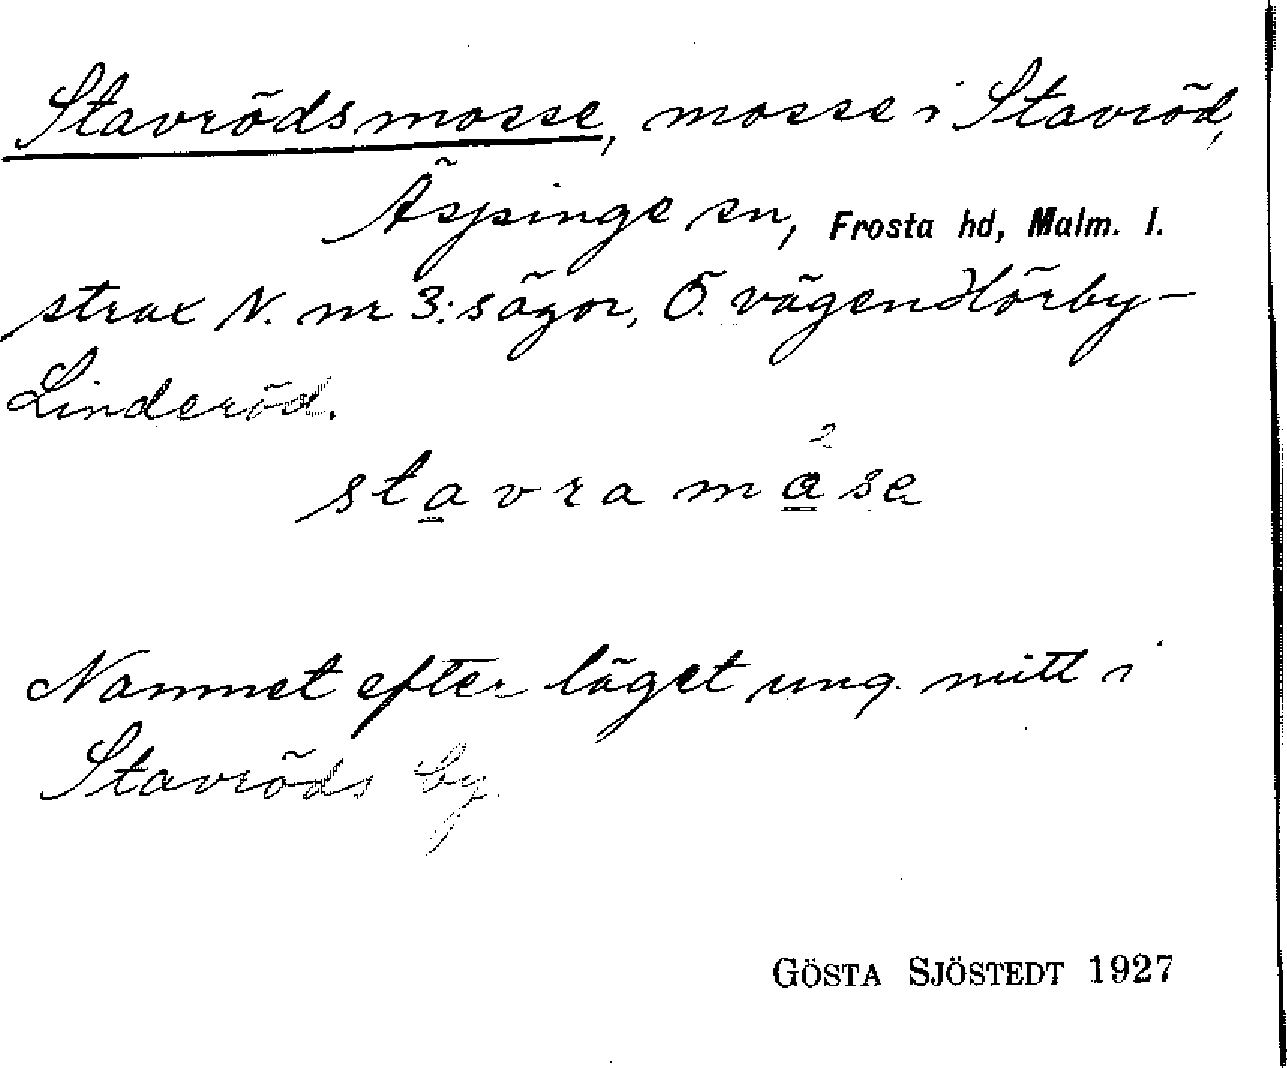 Stavrödsmosse, mosse i Stavröd,
Äspinge sn, Frosta hd, Malm. l.
strax N. nr 3:s ägor, Ö. vägen Hörby-
Linderöd.
stavramåse
Namnet efter läget ung. mitt i
Stavröds by.
GÖSTA SJÖSTEDT 1927